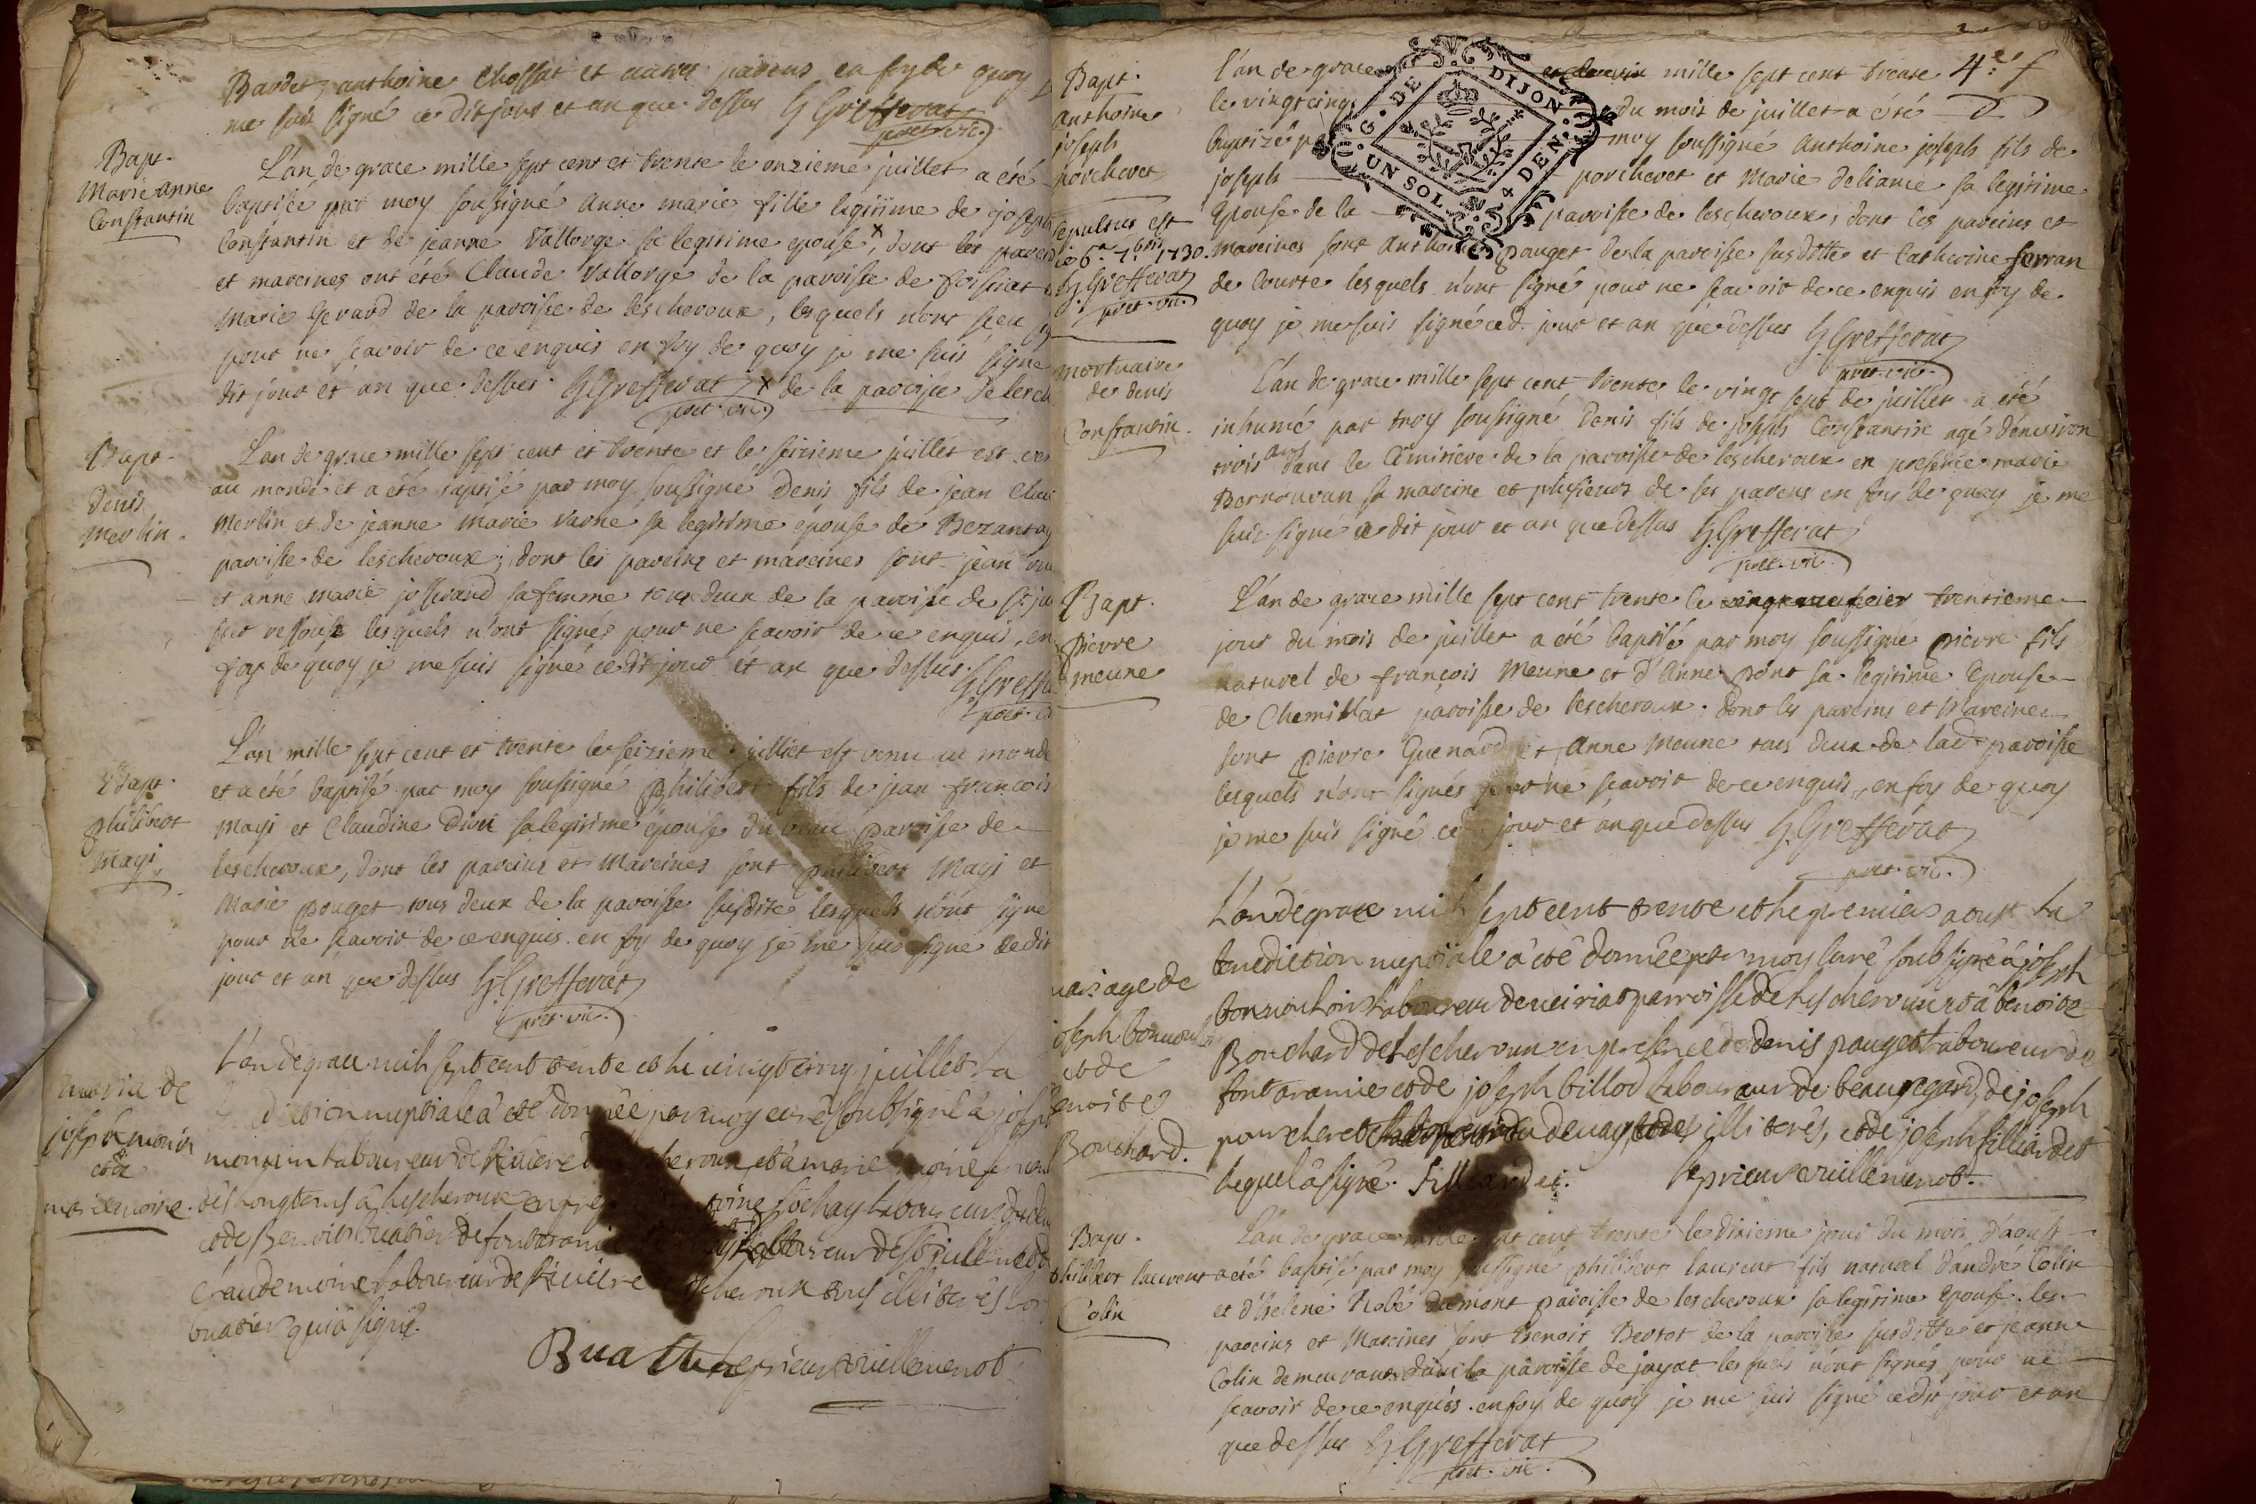 Bardet, anthoine Chossat et autres parens en foy de quoy je
me suis signé ce dit jour et an que dessus G Grefferat
pret. vic.
Bapt.
Marie anne
Constantin
L'an de grace mille sept cent et trente le onzieme juillet a été
baptisée par moy soussigné anne marie fille legitime de joseph
Constantin et de jeanne Vallorge sa legitime epouse x, dont les
et mareines ont été Claude Vallorge de la paroisse de foissiat
Marie Gerard de la paroisse de lescheroux, lesquels n'ont
pour ne scavoir de ce enquis en foy de quoy je me suis signé
dit jour et an que dessus. G Grefferat x de la paroisse de
pret. vic.
Bapt.
Denis
Merlin.
L'an de grace mille sept cent et trente et le seizieme juillet est
au monde et a été baptisé par moy soussigné Denis fils de jean
Merlin et de jeanne Marie varne sa legitime epouse de
paroisse de lescheroux ; dont les pareins et mareines sont jean
et anne marie josserand sa femme tous deux de la paroisse de
sur ressouse lesquels n'ont signés pour ne scavoir de ce enquis, en
foy de quoy je me suis signé ce dit jour et an que dessus. G
pret.
Bapt.
philibert
Magi.
L'an mille sept cent et trente le seizieme juillet est venu au monde
et a été baptisé par moy soussigné Philibert fils de jean françois
Magi et Claudine sa legitime épouse paroisse de
lescheroux, dont les pareins et Mareines sont philibert Magi et
Marie pouget tous deux de la paroisse susdite lesquels n'ont signé
pour ne scavoir de ce enquis. en foy de quoy je me suis signé ce dit
jour et an que dessus G. Grefferat
pret. vic.
de
joseph monin
et de
marie moine.
L'an de grace mil sept cent trente et le vingt cinq juillet la
nuptiale a été donnée par moy curé soubsigné à
laboureur de et à marie moine
dès longtems à lescheroux en laboureur
et de fontaranie laboureur de
Claude moine laboureur de tous illiterés
buatier qui a signé.
Buatier le prieur vuillemenot
Bapt.
anthoine
joseph
porcheret
sepulture est
le 6e 7bris 1730.
G. Grefferat
pret. vic.
G. DE DIJON
UN SOL 4 DEN.
l'an de grace mille sept cent trente 4e f
le vingt cinq du mois de juillet a été
baptizé moy soussigné Anthoine joseph fils de
joseph porcheret et Marie sa legitime
Epouse de la paroisse de lescheroux, dont les pareins et
mareines sont Anthoine pouget de la paroisse susditte et Catherine ferran
de Courte lesquels n'ont signé pour ne scavoir de ce enquis en foy de
quoy je me suis signé ced. jour et an que dessus G Grefferat
pret. vic.
mortuaire
de denis
Constantin.
L'an de grace mille sept cent trente le vingt sept de juillet a été
inhumé par moy soussigné Denis fils de joseph Constantin agé d'environ
trois ans dans le Cimitiere de la paroisse de lescheroux en presence marie
sa mareine et plusieurs de ses parens en foy de quoy je me
suis signé ce dit jour et an que dessus G. Grefferat
pret. vic.
Bapt.
Pierre
meune
L'an de grace mille sept cent trente le trentieme
jour du mois de juillet a été baptisé par moy soussigné pierre fils
naturel de françois Meune et d'Anne pont sa legitime Epouse
de Chemillat paroisse de lescheroux. dont les pareins et Mareines
sont pierre Guenard et Anne Meune tous deux de lad. paroisse
lesquels n'ont signés pour ne scavoir de ce enquis, en foy de quoy
je me suis signé ced jour et an que dessus G. Grefferat
pret. vic.
mariage de
joseph
et de
benoite
Bouchard.
L'an de grace mil sept cent trente et le premier aoust la
benediction nuptiale a été donnée par moy curé soubsigné à joseph
laboureur de neiriat parroisse de lescheroux et à benoite
Bouchard de lescheroux en presence de denis pouget laboureur de
fontaranie et de joseph billod laboureur de beauregard, de joseph
pourcheret illiterés, et de joseph filliardet
lequel a signé. filliardet. le prieur vuillemenot.
Bapt.
philibert laurent
Colin
L'an de grace mille sept cent trente le dixieme jour du mois d'aoust
a été baptisé par moy soussigné philibert laurent fils naturel d'andré Colin
et d'helene paroisse de lescheroux sa legitime Epouse. les
pareins et Mareines sont Benoit de la paroisse susditte et jeanne
Colin demeurant dans la paroisse de jayat lesquels n'ont signés pour ne
scavoir de ce enquis. en foy de quoy je me suis signé ce dit jour et an
que dessus G. Grefferat
pret. vic.